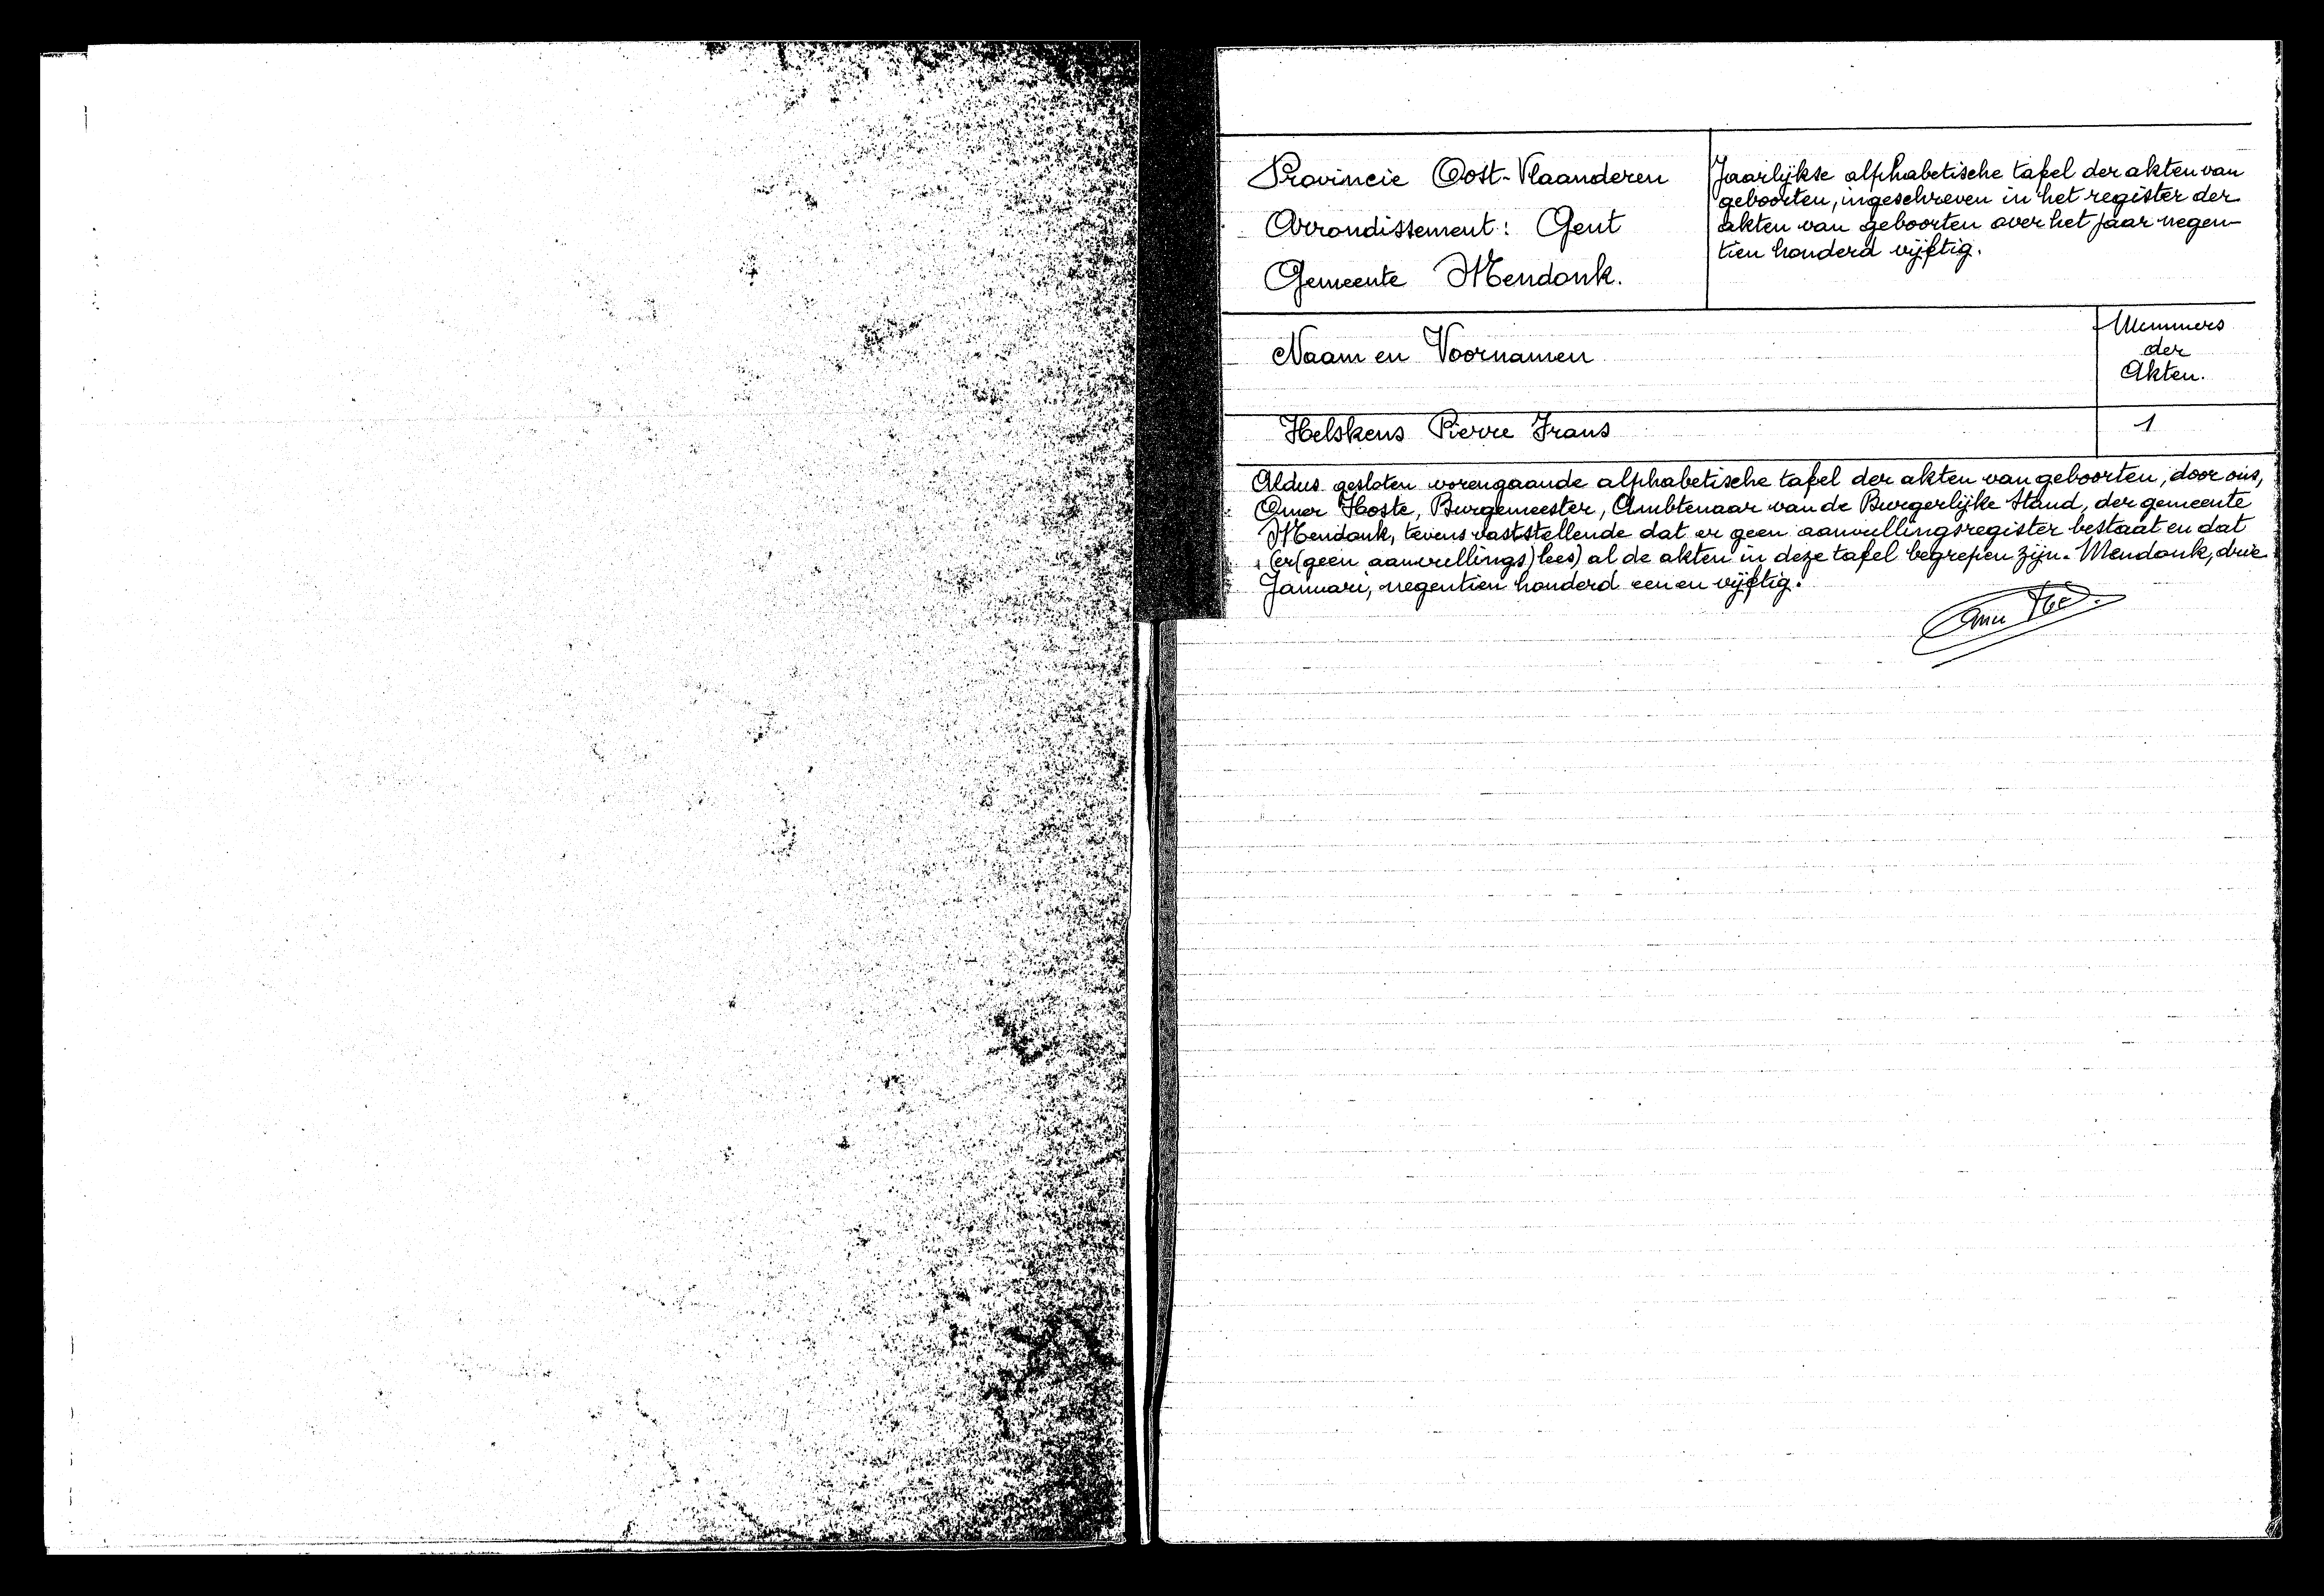 Provincie Oost-Vlaanderen
Arrondissement: Gent
Gemeente Mendonk.
Jaarlijkse alphabetische tafel der akten van
geboorten, ingeschreven in het register der
akten van geboorten over het jaar negen-
tien honderd vijftig.
Naam en Voornamen
Nummers
der
Akten.
Helskens Pierre Frans
1
Aldus gesloten vorengaande alphabetische tafel der akten van geboorten, door ons,
Omer Hoste, Burgemeester, Ambtenaar van de Burgerlijke Stand, der gemeente
Mendonk, tevens vaststellende dat er geen aanvullingsregister bestaat en dat
(er(geen aanvullings)lees) al de akten in deze tafel begrepen zijn. Mendonk, drie
Januari, negentien honderd een en vijftig.